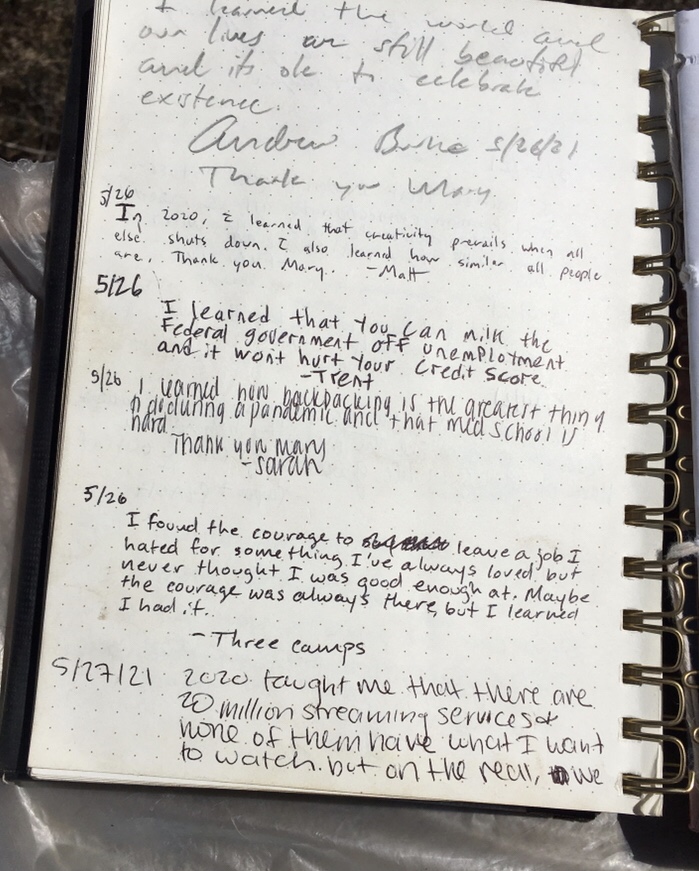 I learned the world and
our lives are still beautiful
and its ok to celebrate
existence.
Andrew 5/26/21
Thank you Mary
5/26
In 2020, I learned that creativity prevails when all
else shuts down. I also learned how similar all people
are. Thank you Mary. -Matt
5/26
I learned that you can milk the
Federal government off unemployment
and it wont hurt your credit score.
-Trent
5/26 I learned how backpacking is the greatest thing
to do during a pandemic and that med school is
hard.
Thank you Mary
-sarah
5/26
I found the courage to leave a job I
hated for something I've always loved but
never thought I was good enough at. Maybe
the courage was always there, but I learned
I had it.
-Three camps
5/27/21 2020 taught me that there are
20 million streaming services &
none of them have what I want
to watch. but on the real, we